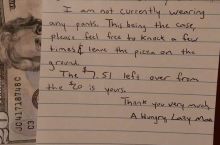 I am not currently wearing
any pants. This being the case,
please feel free to knock a few
times & leave the pizza on the
ground.
The $7.51 left over from
the $20 is yours.
Thank you very much,
A Hungry, Lazy Man